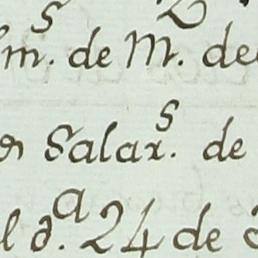 m.s de M. de
Salar.s de
d.a 24 de